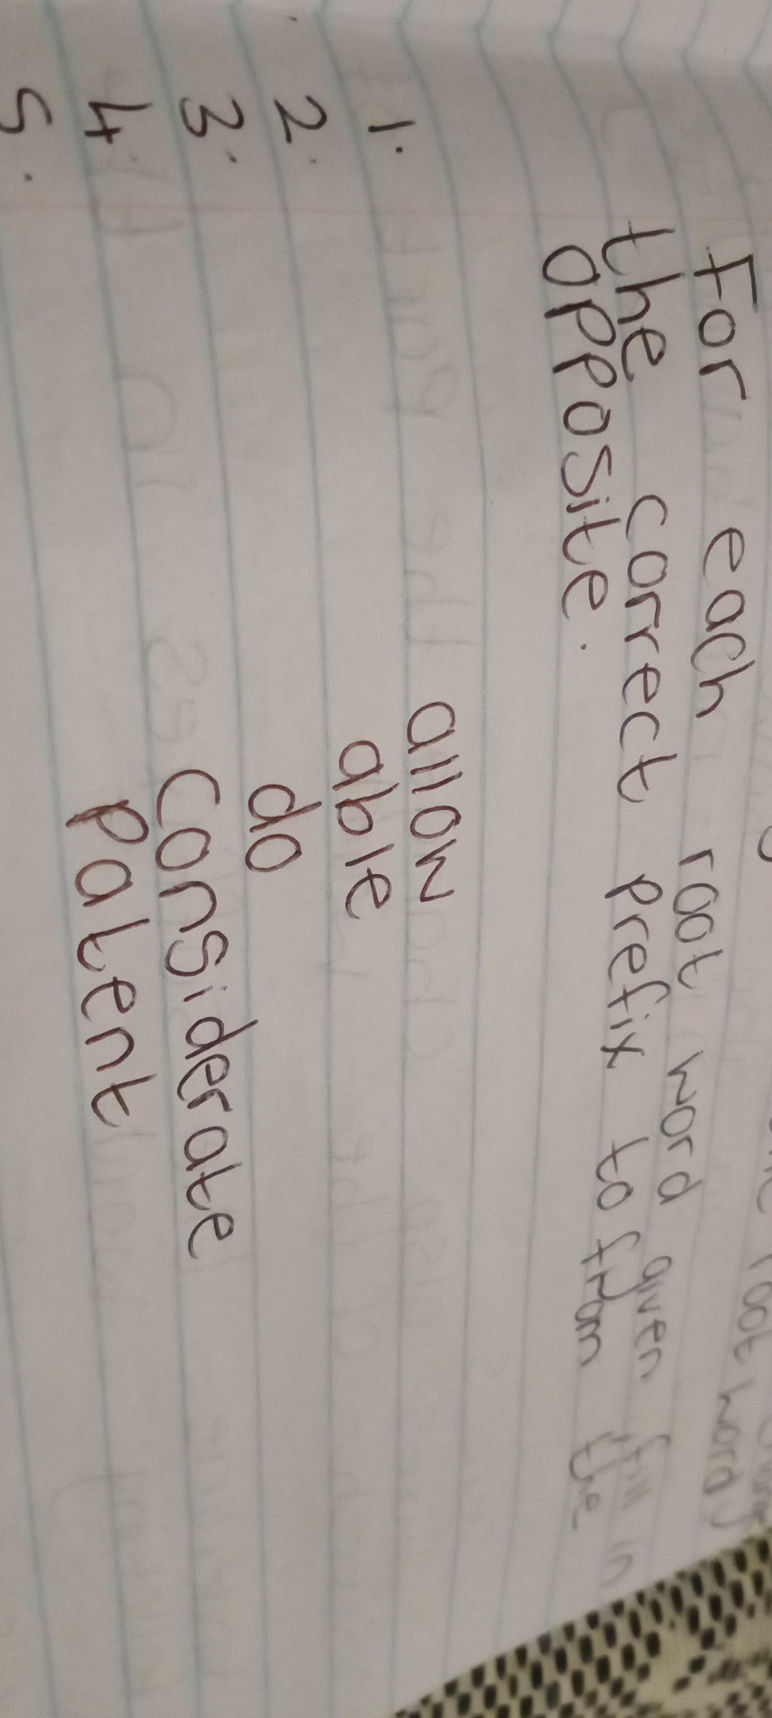 root word
For each root word given fill in
the correct prefix to from the
opposite.
1. allow
2. able
3. do
4. considerate
5. patent